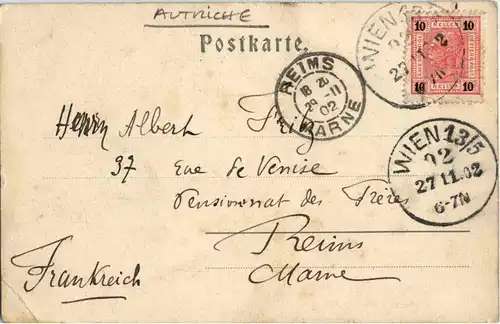 AUTRICHE
Postkarte.
WIEN
92
10 10
10 10
REIMS
18 20
29 -11
02
MARNE
WIEN 13/5
92
27 11.02
6-7N
Herrn Albert
37 Rue de Venise
Pensionnat des Frères
Reims
Marne
Frankreich